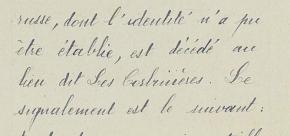 russe, dont l'identité n'a pu
être établie, est décédé au
lieu dit Les. Le
signalement est le suivant :